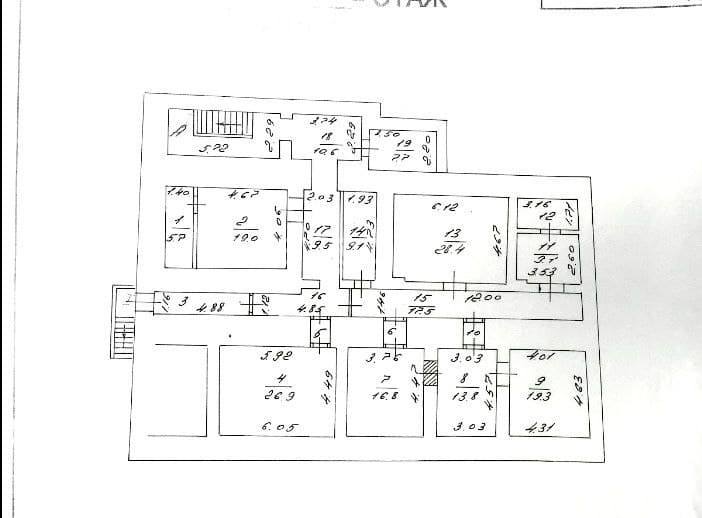 ЭТАЖ
А
5.72
2.29
3.74
18
10.6
2.29
3.50
19
7.7
2.20
1.40
1
5.7
4.67
2
19.0
4.06
2.03
17
9.5
4.70
1.93
14
9.1
4.73
6.12
13
28.4
4.67
3.16
12
1.71
11
9.1
3.53
2.60
1.16
3
4.88
1.12
16
4.85
1.46
15
17.5
12.00
5
6
10
5.92
4
26.9
4.49
6.05
3.76
7
16.8
4.47
3.03
8
13.8
4.57
3.03
4.01
9
19.3
4.63
4.31